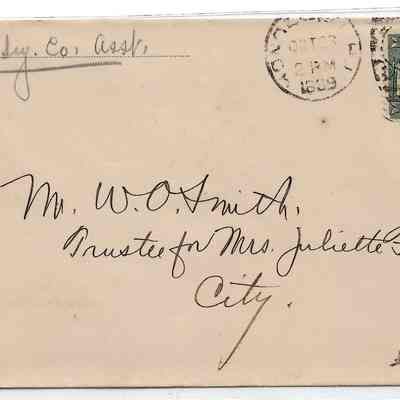 Sy. Co. Asst.
OCT 23
2 PM
1899
Mr. W. O. Smith.
Trustee for Mrs. Juliette
City.